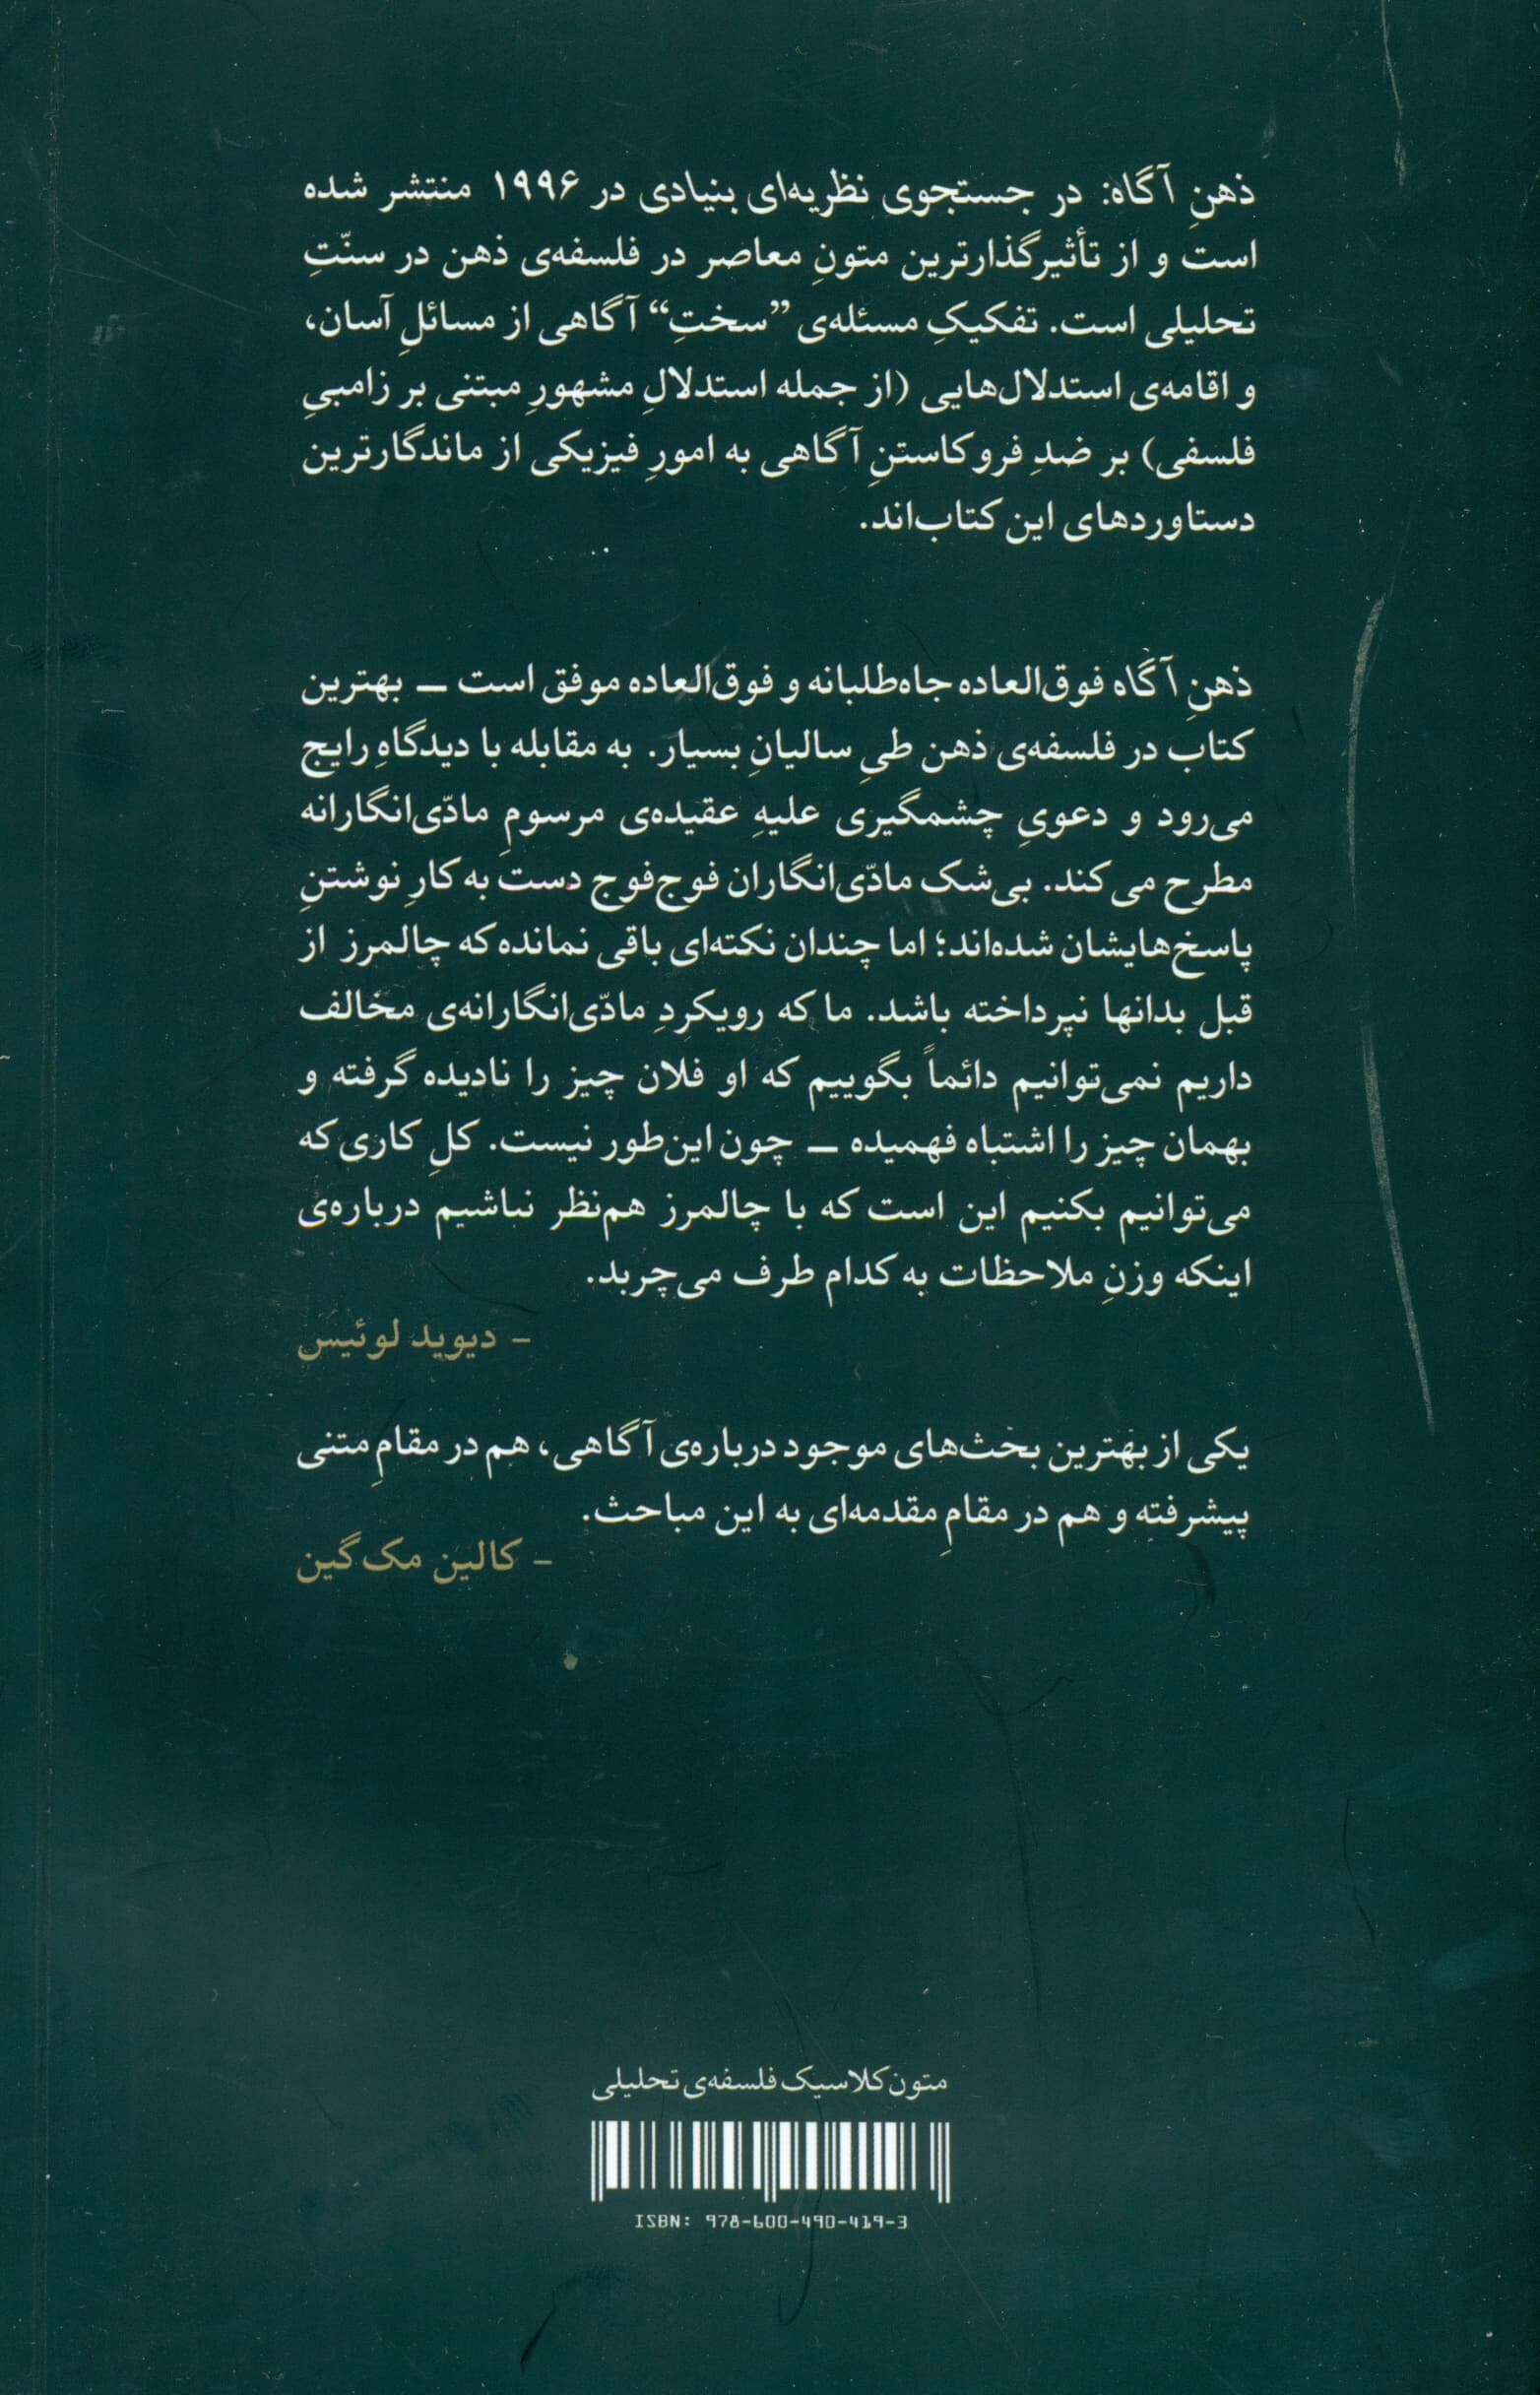 ذهنِ آگاه: در جستجوی نظریه‌ای بنیادی در ۱۹۹۶ منتشر شده
است و از تأثیرگذارترین متونِ معاصر در فلسفه‌ی ذهن در سنّتِ
تحلیلی است. تفکیکِ مسئله‌ی ”سختِ“ آگاهی از مسائلِ آسان،
و اقامه‌ی استدلال‌هایی (از جمله استدلالِ مشهورِ مبتنی بر زامبیِ
فلسفی) بر ضدِ فروکاستنِ آگاهی به امورِ فیزیکی از ماندگارترین
دستاوردهای این کتاب‌اند.
ذهنِ آگاه فوق‌العاده جاه‌طلبانه و فوق‌العاده موفق است ــ بهترین
کتاب در فلسفه‌ی ذهن طیِ سالیانِ بسیار. به مقابله با دیدگاهِ رایج
می‌رود و دعویِ چشمگیری علیهِ عقیده‌ی مرسومِ مادّی‌انگارانه
مطرح می‌کند. بی‌شک مادّی‌انگاران فوج‌فوج دست به کارِ نوشتنِ
پاسخ‌هایشان شده‌اند؛ اما چندان نکته‌ای باقی نمانده که چالمرز از
قبل بدانها نپرداخته باشد. ما که رویکردِ مادّی‌انگارانه‌ی مخالف
داریم نمی‌توانیم دائماً بگوییم که او فلان چیز را نادیده گرفته و
بهمان چیز را اشتباه فهمیده ــ چون این‌طور نیست. کلِ کاری که
می‌توانیم بکنیم این است که با چالمرز هم‌نظر نباشیم درباره‌ی
اینکه وزنِ ملاحظات به کدام طرف می‌چربد.
- دیوید لوئیس
یکی از بهترین بحث‌های موجود درباره‌ی آگاهی، هم در مقامِ متنی
پیشرفته و هم در مقامِ مقدمه‌ای به این مباحث.
- کالین مک‌گین
متون کلاسیک فلسفه‌ی تحلیلی
ISBN: 978-600-490-419-3